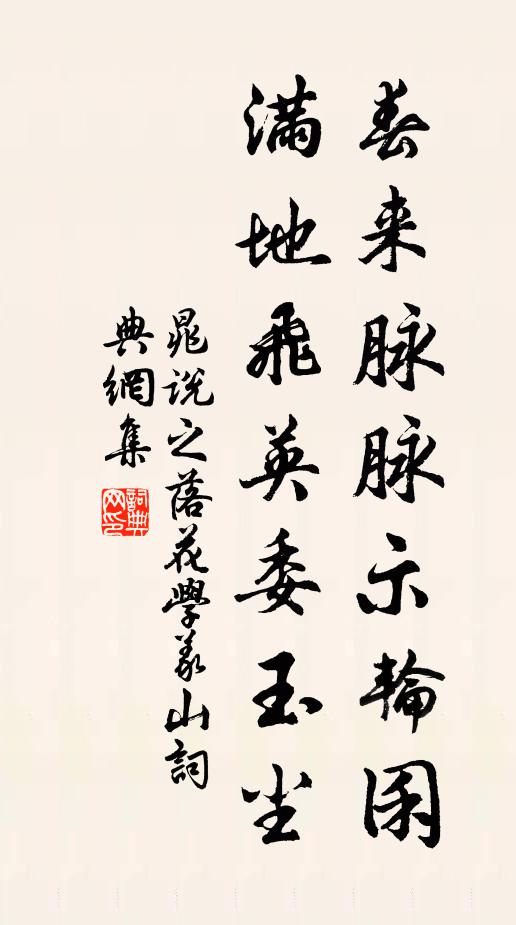 春来脉脉示輪囷
滿地飛英委玉尘
晁說之落花學義山詞
典網集
詞典网印